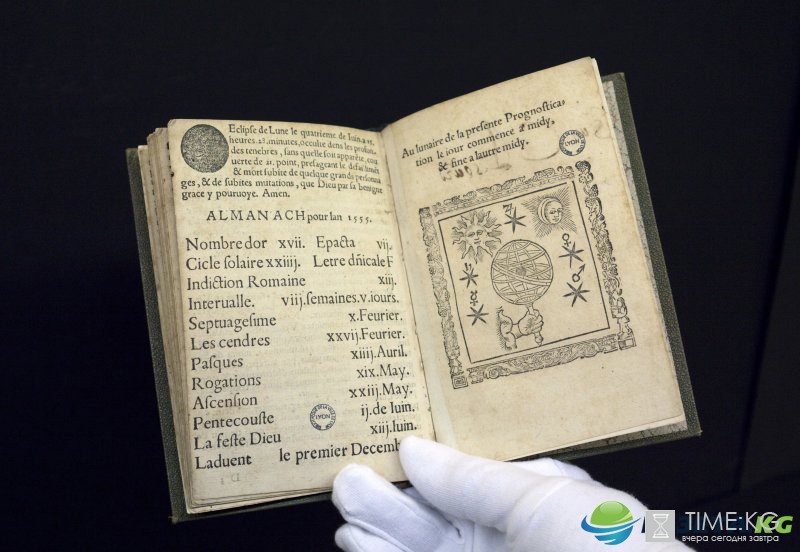 Eclipse de Lune le quatrieme de Iuin, a 15.
heures. 28. minutes, occulte dens les profon-
des tenebres, sans quelle soit
uerte de 21. point, presageant le
& mort subite de quelque grands personna
ges, & de subites mutations, que Dieu par sa benigne
grace y pouruoye. Amen.
ALMANACH pour lan 1555.
Nombre dor xvii. Epacta vij.
Cicle solaire xxiiij. Letre dñicale F
Indiction Romaine xiij.
Interualle. viij. semaines. v. iours.
Septuagesime x. Feurier.
Les cendres xxvij. Feurier.
Pasques xiiij. Auril.
Rogations xix. May.
Ascension xxiij. May.
Pentecouste ij. de Iuin.
La feste Dieu xiij. Iuin.
Laduent le premier Decemb
LYON
Au lunaire de la presente Prognostica-
tion le iour commence a midy,
& finc a lautre midy.
LYON
KG
TIME:KG
вчера сегодня завтра